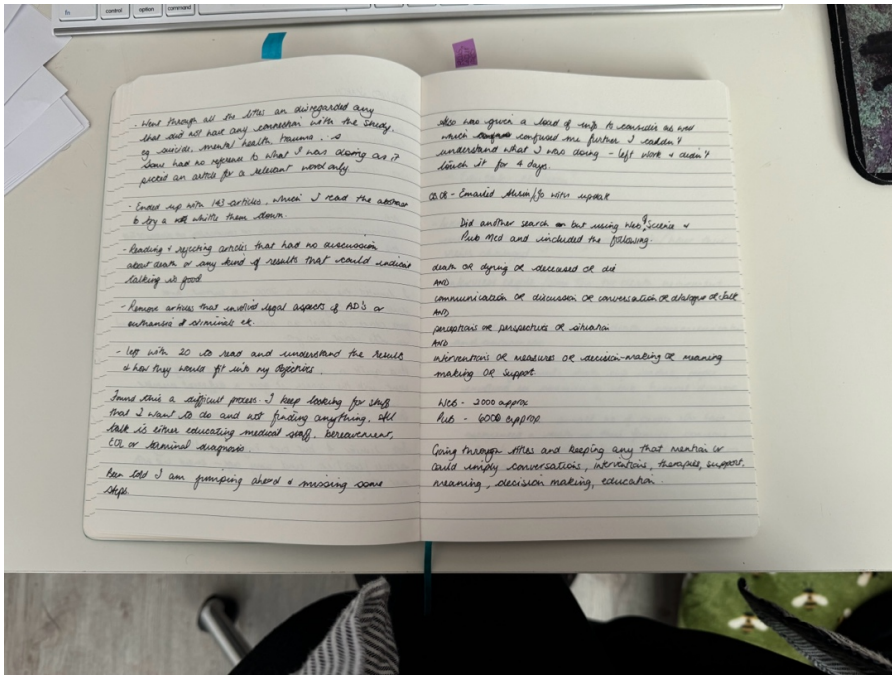 control
option
command
- Went through all the titles an disregarded any
that did not have any connection with the study,
eg suicide, mental health, trauma,
Some had no reference to what I was doing as it
picked an article for a relevant word only
- Ended up with 143 articles, which I read the abstract
to try a whittle them down.
- Reading + rejecting articles that had no discussion
about death or any kind of results that could indicate
talking is good
- Remove articles that involved legal aspects of AD's or
euthanasia & criminals etc.
- left with 20 to read and understand the results
& how they would fit into my objectives.
Found this a difficult process. I keep looking for stuff
that I want to do and not finding anything, still
talk is either educating medical staff, bereavement,
EOL or terminal diagnosis.
Been told I am jumping ahead & missing some
steps.
Also was given a load of info to consider as well
which confused me further I couldn't
understand what I was doing - left work & didn't
touch it for 4 days.
- Emailed with update
Did another search but using Web of Science &
Pub Med and included the following.
death OR dying OR deceased OR die
AND
communication OR discussion OR conversation OR dialogue OR talk
AND
perceptions OR perspectives OR situation
AND
interventions OR measures OR decision-making OR meaning
making OR support.
Web - 2000 approx
Pub - 6000 approx.
Going through titles and keeping any that mention or
could imply conversations, interventions, therapies, support,
meaning, decision making, education.